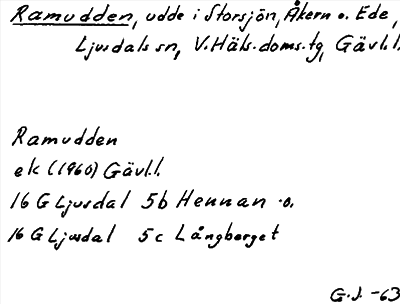 Ramudden, udde i Storsjön, Åkern o. Ede,
Ljusdals sn, V. Häls. doms. tg, Gävl.l.
Ramudden
ek (1960) Gävl.l.
16 G Ljusdal 5b Hennan o.
16 G Ljusdal 5c Långberget
G.J. -63